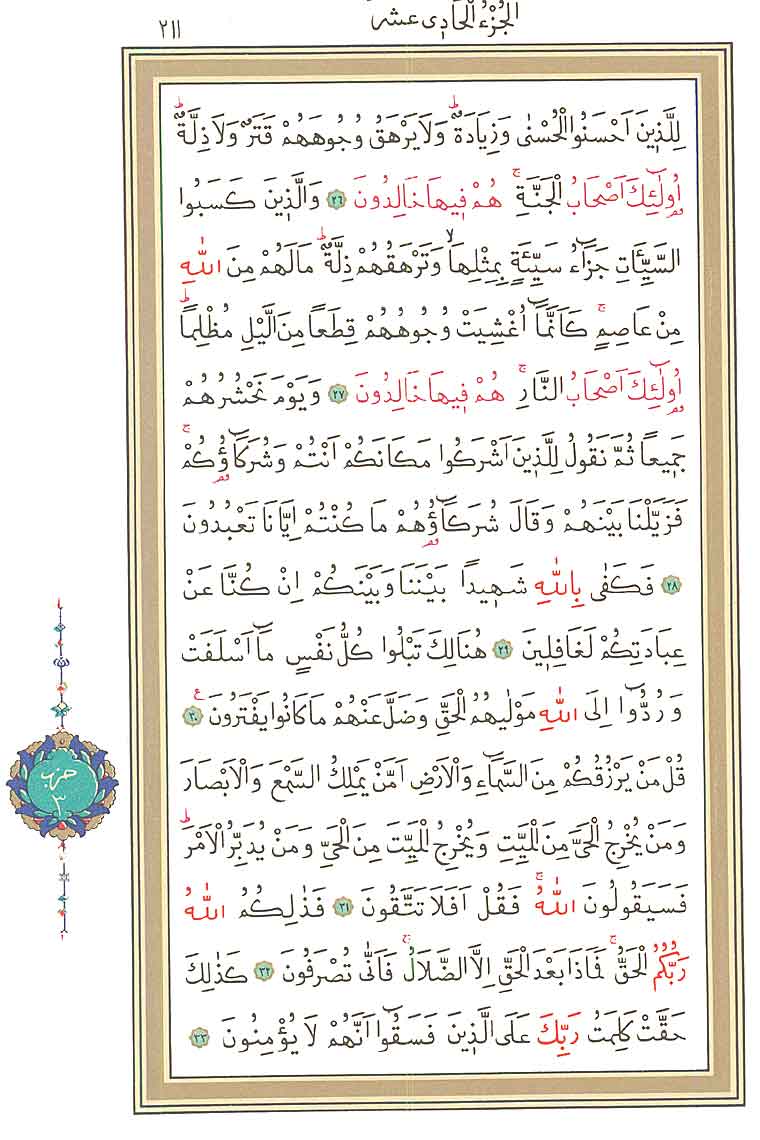 الجزء الحادى عشر
٢١١
لِلَّذِينَ اَحْسَنُوا الْحُسْنٰى وَزِيَادَةٌ ط وَلَا يَرْهَقُ وُجُوهَهُمْ قَتَرٌ وَلَا ذِلَّةٌ ط
اُو۬لٰٓئِكَ اَصْحَابُ الْجَنَّةِ ج هُمْ فِيهَا خَالِدُونَ ٢٦ وَالَّذِينَ كَسَبُوا
السَّيِّـَٔاتِ جَزَٓاءُ سَيِّئَةٍ بِمِثْلِهَا لا وَتَرْهَقُهُمْ ذِلَّةٌ ط مَا لَهُمْ مِنَ اللّٰهِ
مِنْ عَاصِمٍ ج كَاَنَّمَٓا اُغْشِيَتْ وُجُوهُهُمْ قِطَعًا مِنَ الَّيْلِ مُظْلِمًا ط
اُو۬لٰٓئِكَ اَصْحَابُ النَّارِ ج هُمْ فِيهَا خَالِدُونَ ٢٧ وَيَوْمَ نَحْشُرُهُمْ
جَمِيعًا ثُمَّ نَقُولُ لِلَّذِينَ اَشْرَكُوا مَكَانَكُمْ اَنْتُمْ وَشُرَكَٓاؤُ۬كُمْ ج
فَزَيَّلْنَا بَيْنَهُمْ وَقَالَ شُرَكَٓاؤُ۬هُمْ مَا كُنْتُمْ اِيَّانَا تَعْبُدُونَ
٢٨ فَكَفٰى بِاللّٰهِ شَهِيدًا بَيْنَنَا وَبَيْنَكُمْ اِنْ كُنَّا عَنْ
عِبَادَتِكُمْ لَغَافِلِينَ ٢٩ هُنَالِكَ تَبْلُوا كُلُّ نَفْسٍ مَٓا اَسْلَفَتْ
وَرُدُّٓوا اِلَى اللّٰهِ مَوْلٰيهُمُ الْحَقِّ وَضَلَّ عَنْهُمْ مَا كَانُوا يَفْتَرُونَ ع ٣٠
قُلْ مَنْ يَرْزُقُكُمْ مِنَ السَّمَٓاءِ وَالْاَرْضِ اَمَّنْ يَمْلِكُ السَّمْعَ وَالْاَبْصَارَ
حزب
٣
وَمَنْ يُخْرِجُ الْحَيَّ مِنَ الْمَيِّتِ وَيُخْرِجُ الْمَيِّتَ مِنَ الْحَيِّ وَمَنْ يُدَبِّرُ الْاَمْرَ ط
فَسَيَقُولُونَ اللّٰهُ ج فَقُلْ اَفَلَا تَتَّقُونَ ٣١ فَذٰلِكُمُ اللّٰهُ
رَبُّكُمُ الْحَقُّ ج فَمَاذَا بَعْدَ الْحَقِّ اِلَّا الضَّلَالُ ج فَاَنّٰى تُصْرَفُونَ ٣٢ كَذٰلِكَ
حَقَّتْ كَلِمَتُ رَبِّكَ عَلَى الَّذِينَ فَسَقُٓوا اَنَّهُمْ لَا يُؤْمِنُونَ ٣٣